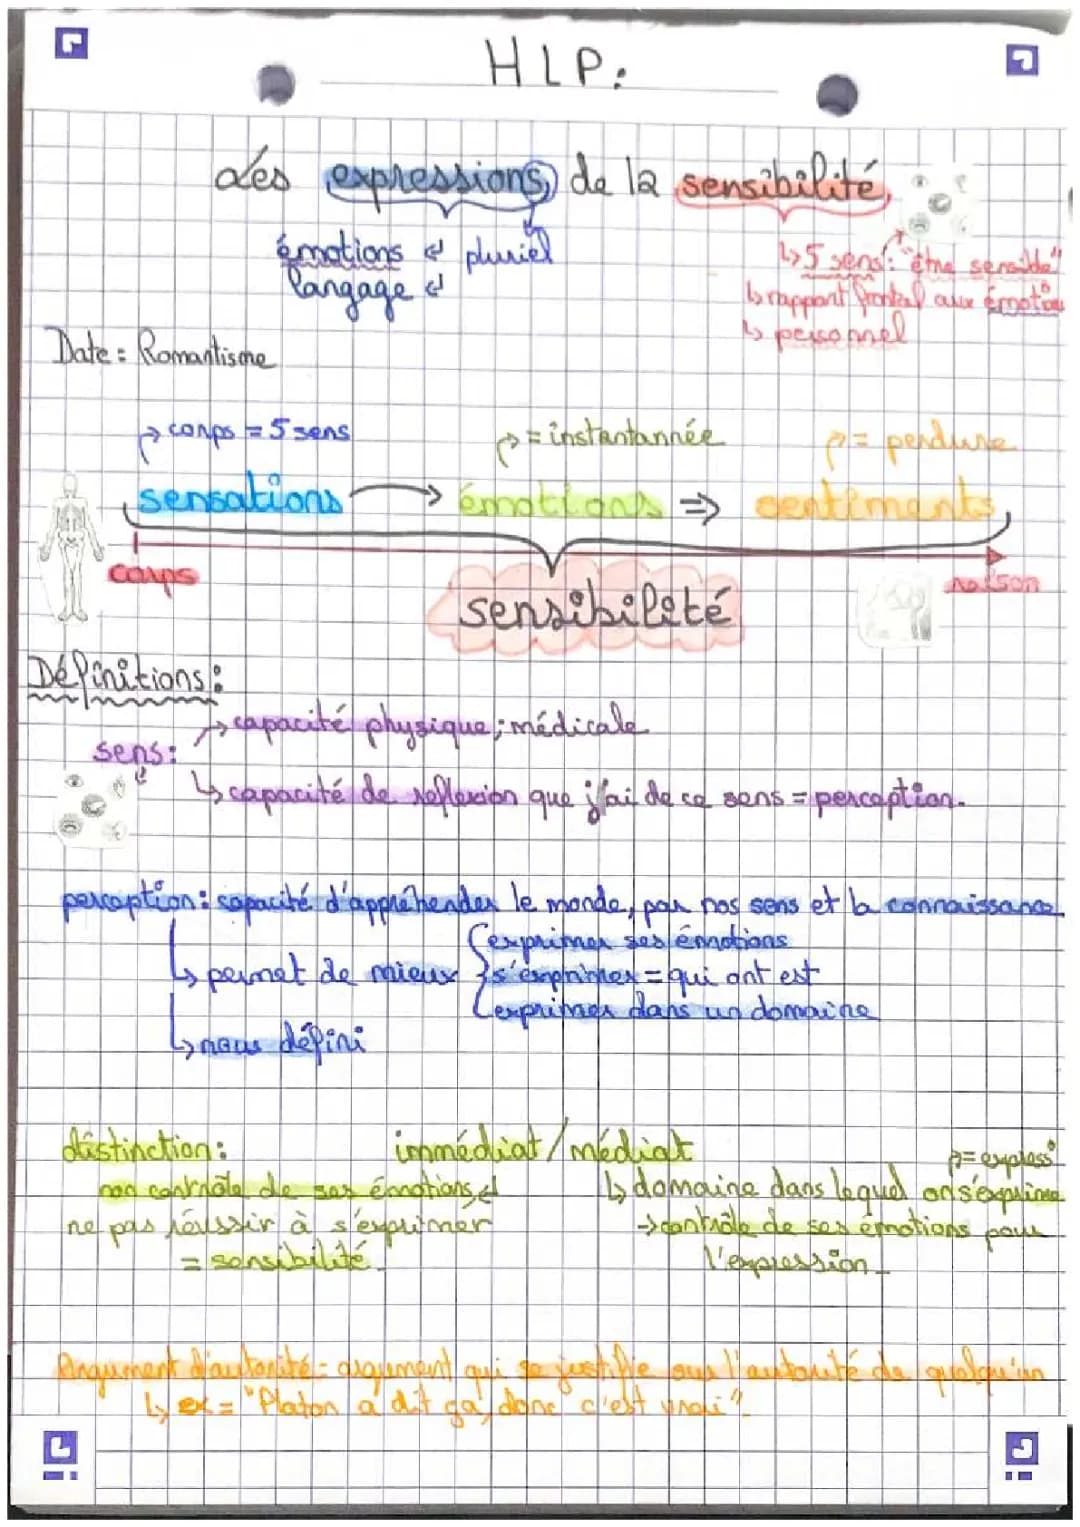 HLP:
Les expressions de la sensibilité
émotions ↲ pluriel
langage ↲
↳ 5 sens: "être sensible"
↳ rappont frontal aux émot°
↳ personnel
Date = Romantisme
corps = 5 sens
= instantannée
= perdure
sensations → émotions ⇒ sentiments
corps
raison
sensibilité
Définitions:
sens:
→ capacité physique; médicale
↳ capacité de reflexion que j'ai de ce sens = perception.
perception: capacité d'appréhender le monde, par nos sens et la connaissance
↳ permet de mieux { exprimer ses émotions
s'exprimer = qui ont est
exprimer dans un domaine
↳ nous défini
distinction: immédiat / médiat
= express°
non contrôle de ses émotions ↲
↳ domaine dans lequel on s'exprime
ne pas réussir à s'exprimer
→ contrôle de ses émotions pour
= sensibilité
l'expression
Argument d'autorité = argument qui se justifie sur l'autorité de quelqu'un
↳ ex = "Platon a dit ça, donc c'est vrai".